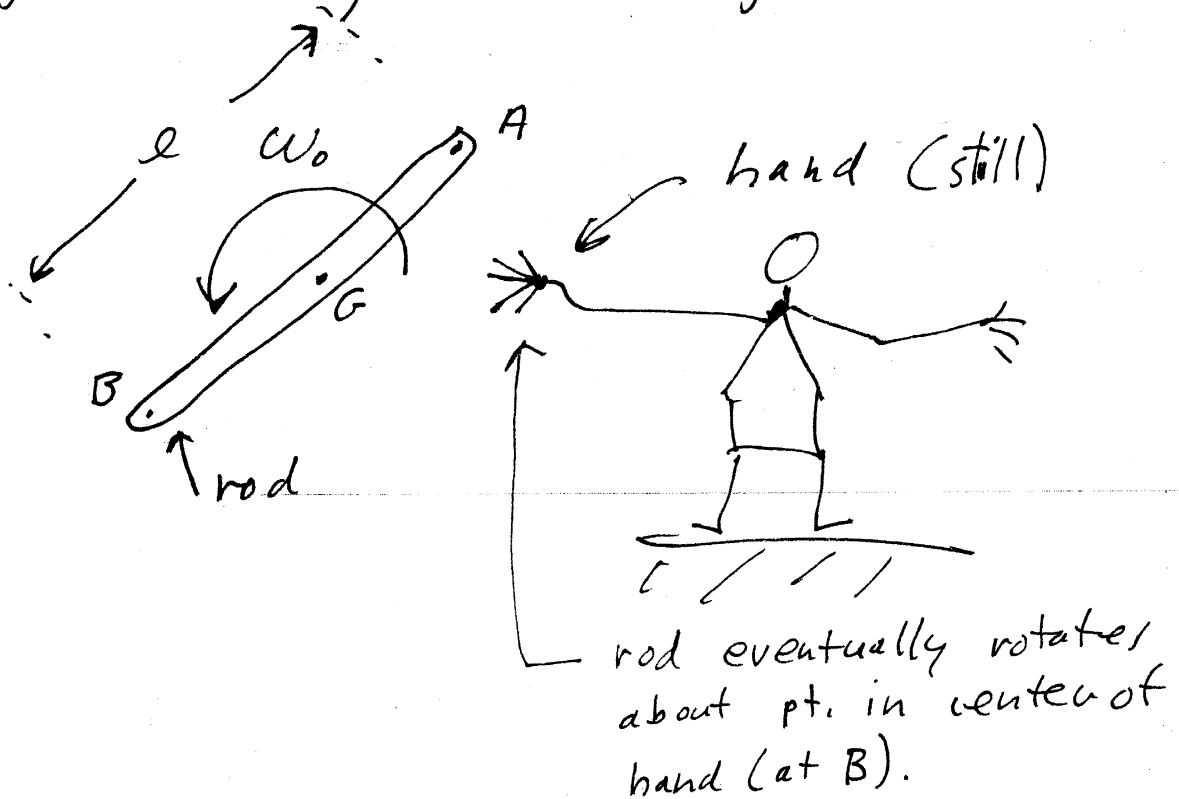 A
l
ω₀
hand (still)
G
B
rod
rod eventually rotates
about pt. in center of
hand (at B).